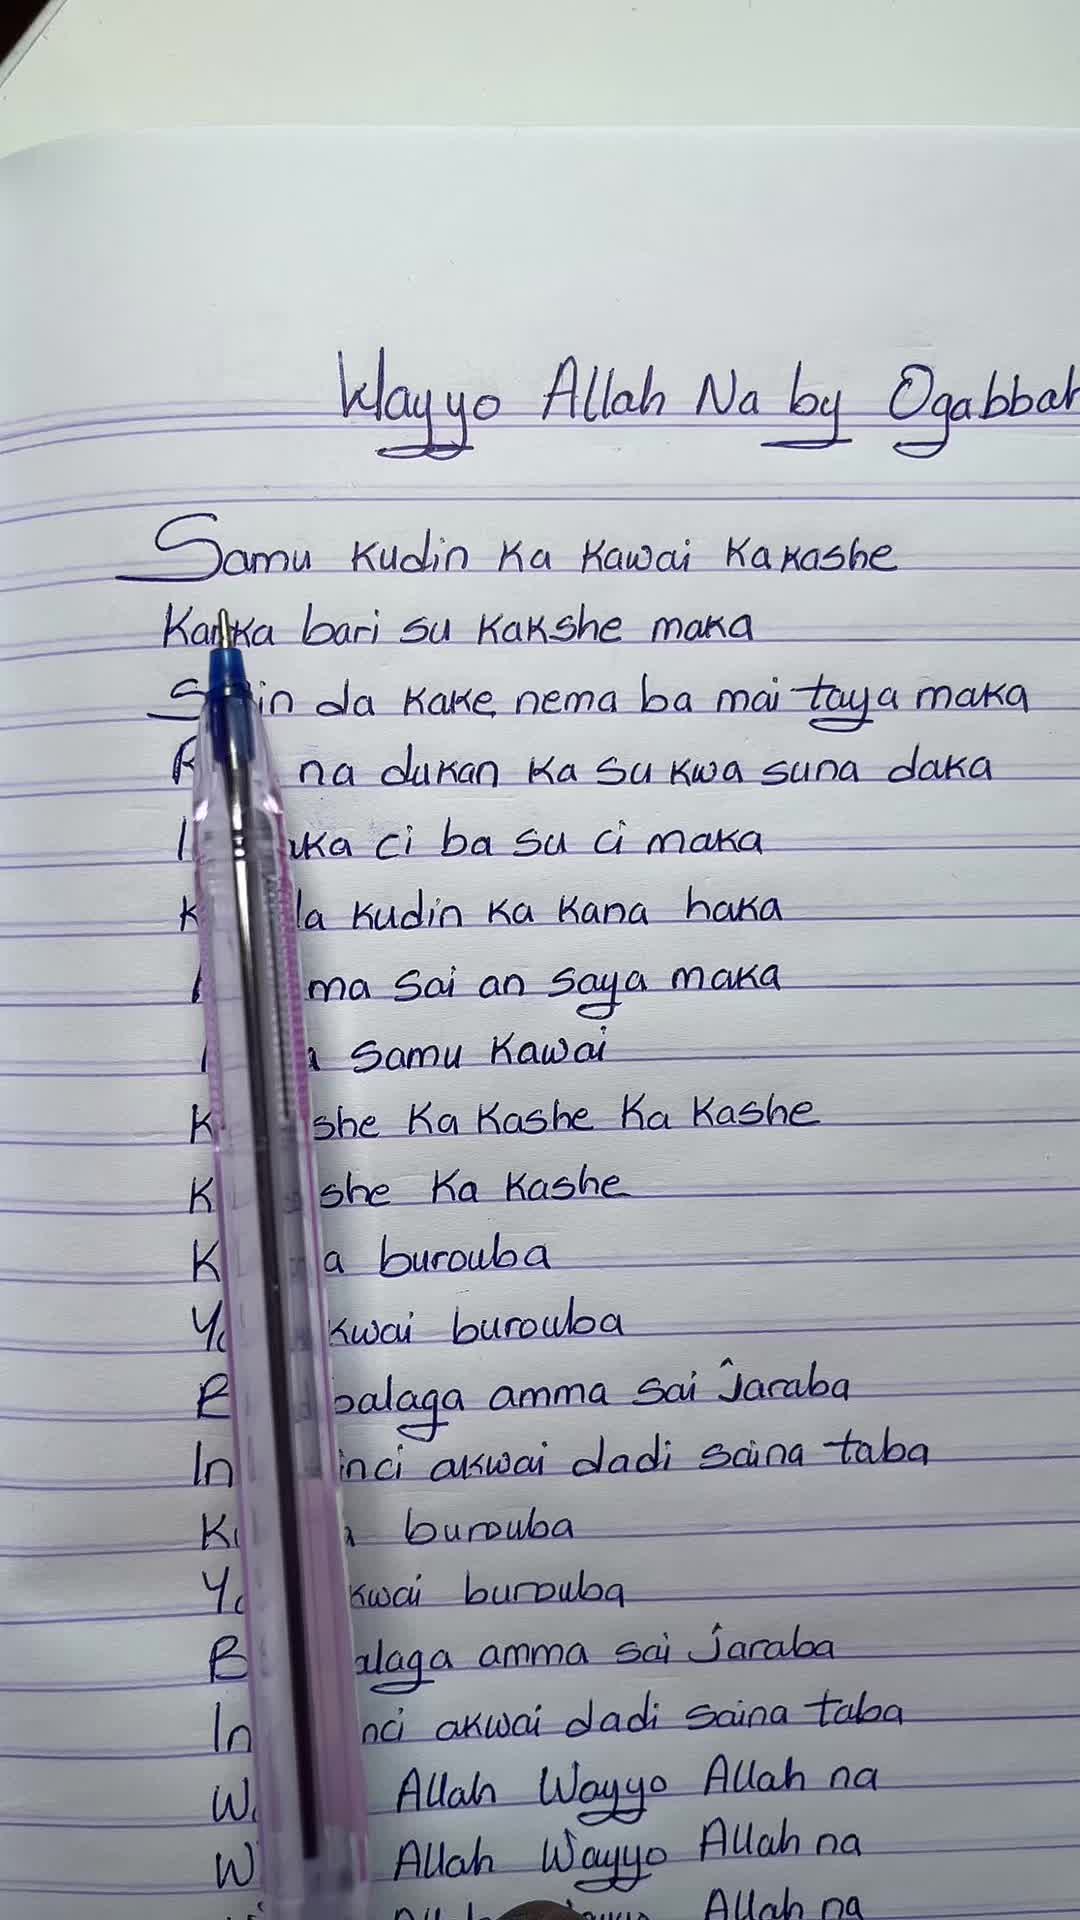 Wayyo Allah Na by Ogabbah
Samu Kudin Ka Kawai Ka Kashe
Kanka bari su Kakshe maka
da Kake nema ba mai taya maka
na dukan Ka su Kwa suna daka
ci ba su ci maka
Kudin Ka Kana haka
sai an saya maka
Samu Kawai
Ka Kashe Ka Kashe
Ka Kashe
burouba
burouba
amma sai jaraba
akwai dadi saina taba
burouba
burouba
amma sai jaraba
akwai dadi saina taba
Allah Wayyo Allah na
Allah Wayyo Allah na
Allah na